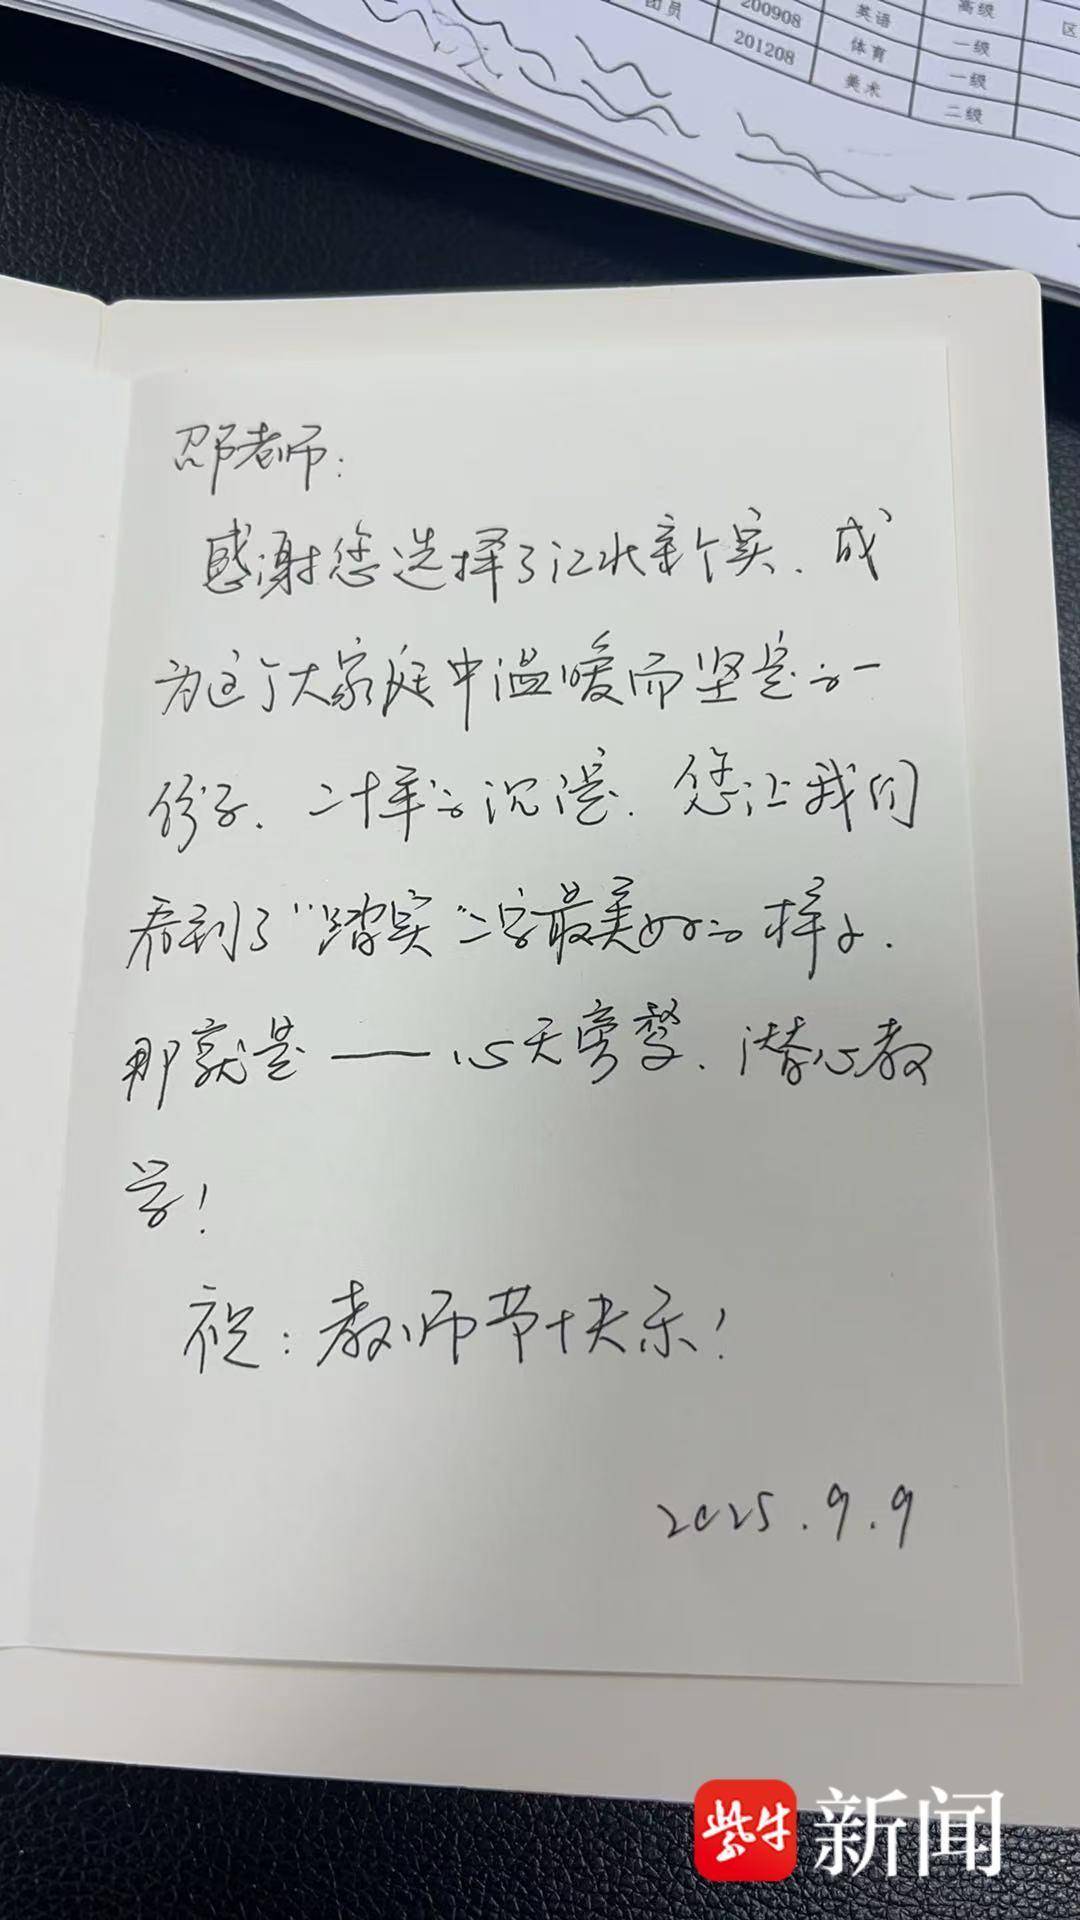 团员
200908
英语
高级
区
201208
体育
一级
美术
一级
二级
邵老师：
感谢您选择了江北新个实、成
为这个大家庭中温暖而坚定的一
份子、二十年的沉淀、您让我们
看到了“踏实”二字最美好的样子、
那就是——心无旁骛、潜心教
学！
祝：教师节快乐！
2025.9.9
紫牛
新闻